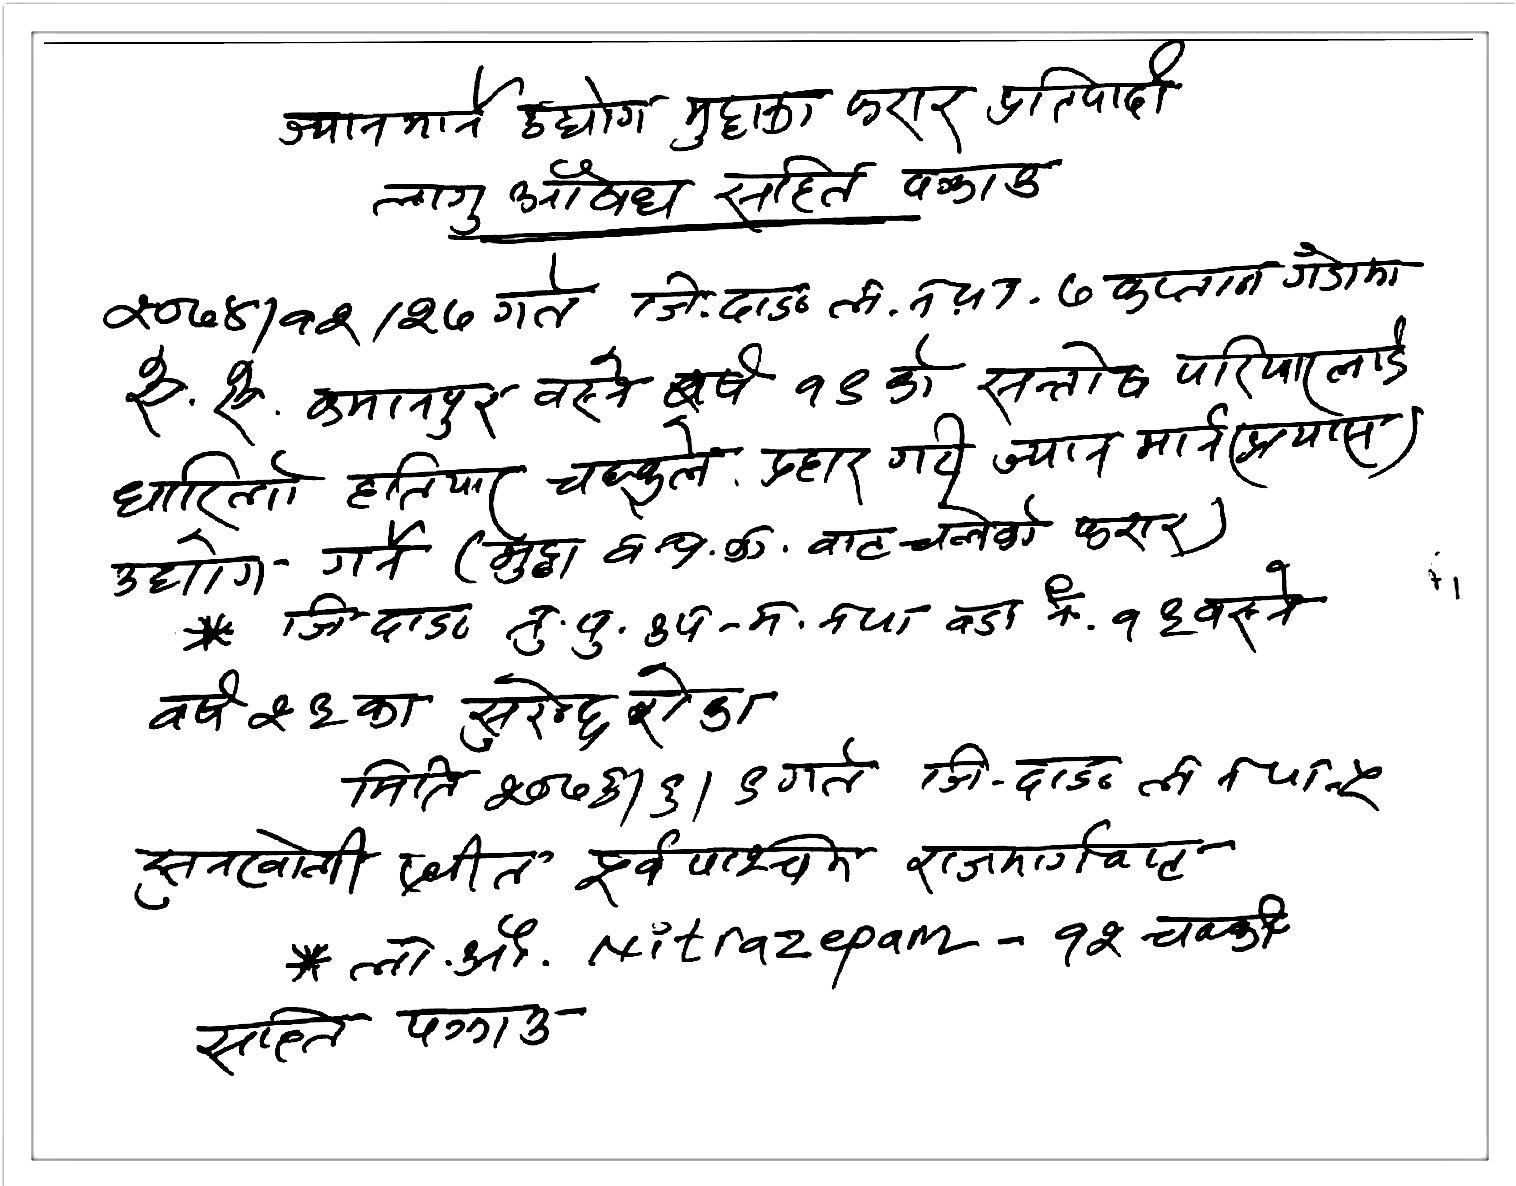 ज्यान मार्ने उद्योग मुद्दाका फरार प्रतिवादी
लागु औषध सहित पक्राउ
२०७४/१२/२७ गते जि.दाङ ल.न.पा. ७ कप्तान गैडामा
कमानपुर बस्ने वर्ष १९ को सन्तोष परियारलाई
धारिलो हतियार चक्कुले प्रहार गरी ज्यान मार्ने (प्रयास)
उद्योग गर्ने (मुद्दा बाट चलेको फरार)
* जि दाङ तु.पु. उप-म.न.पा वडा नं. १६ बस्ने
वर्ष २६ का सुरेन्द्र रोका
मिति २०७६/६/९ गते जि-दाङ ल न पा
सुनखोली स्थीत पूर्व पश्चिम राजमार्गबाट
* ला.औ. Nitrazepam - १२ चक्की
सहित पक्राउ